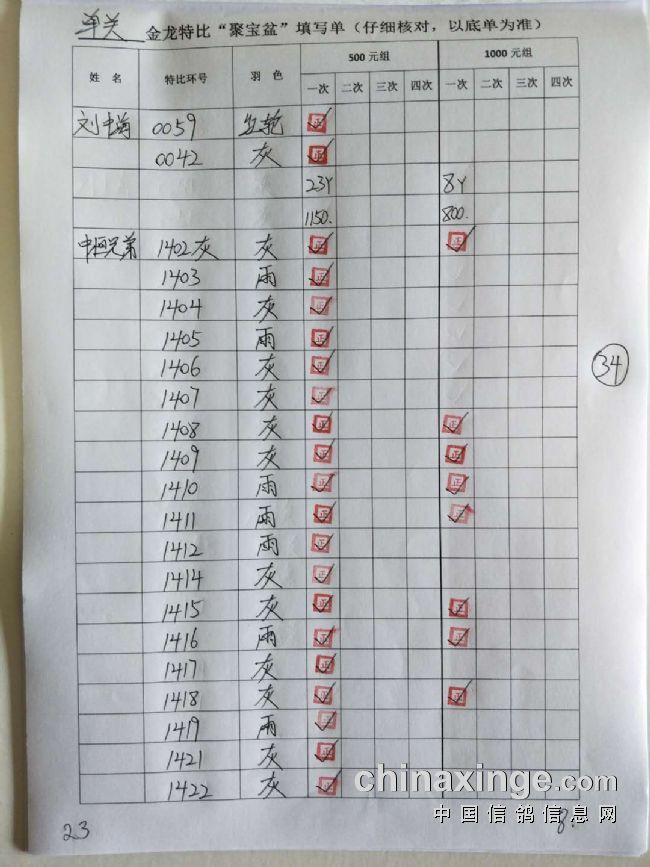 单关 金龙特比“聚宝盆”填写单（仔细核对，以底单为准）
姓 名 特比环号 羽 色 500 元组 1000 元组
一次 二次 三次 四次 一次 二次 三次 四次
0059 正
0042 灰 正
23Y 8Y
1150. 800.
兄弟 1402灰 灰 正 正
1403 雨 正
1404 灰 正
1405 雨 正
1406 灰 正
1407 灰 正
1408 灰 正 正
1409 灰 正 正
1410 雨 正 正
1411 雨 正 正
1412 雨 正
1414 灰 正
1415 灰 正 正
1416 雨 正 正
1417 灰 正
1418 灰 正 正
1419 雨 正
1421 灰 正
1422 灰 正
34
23 8.
chinaxinge.com
中国信鸽信息网